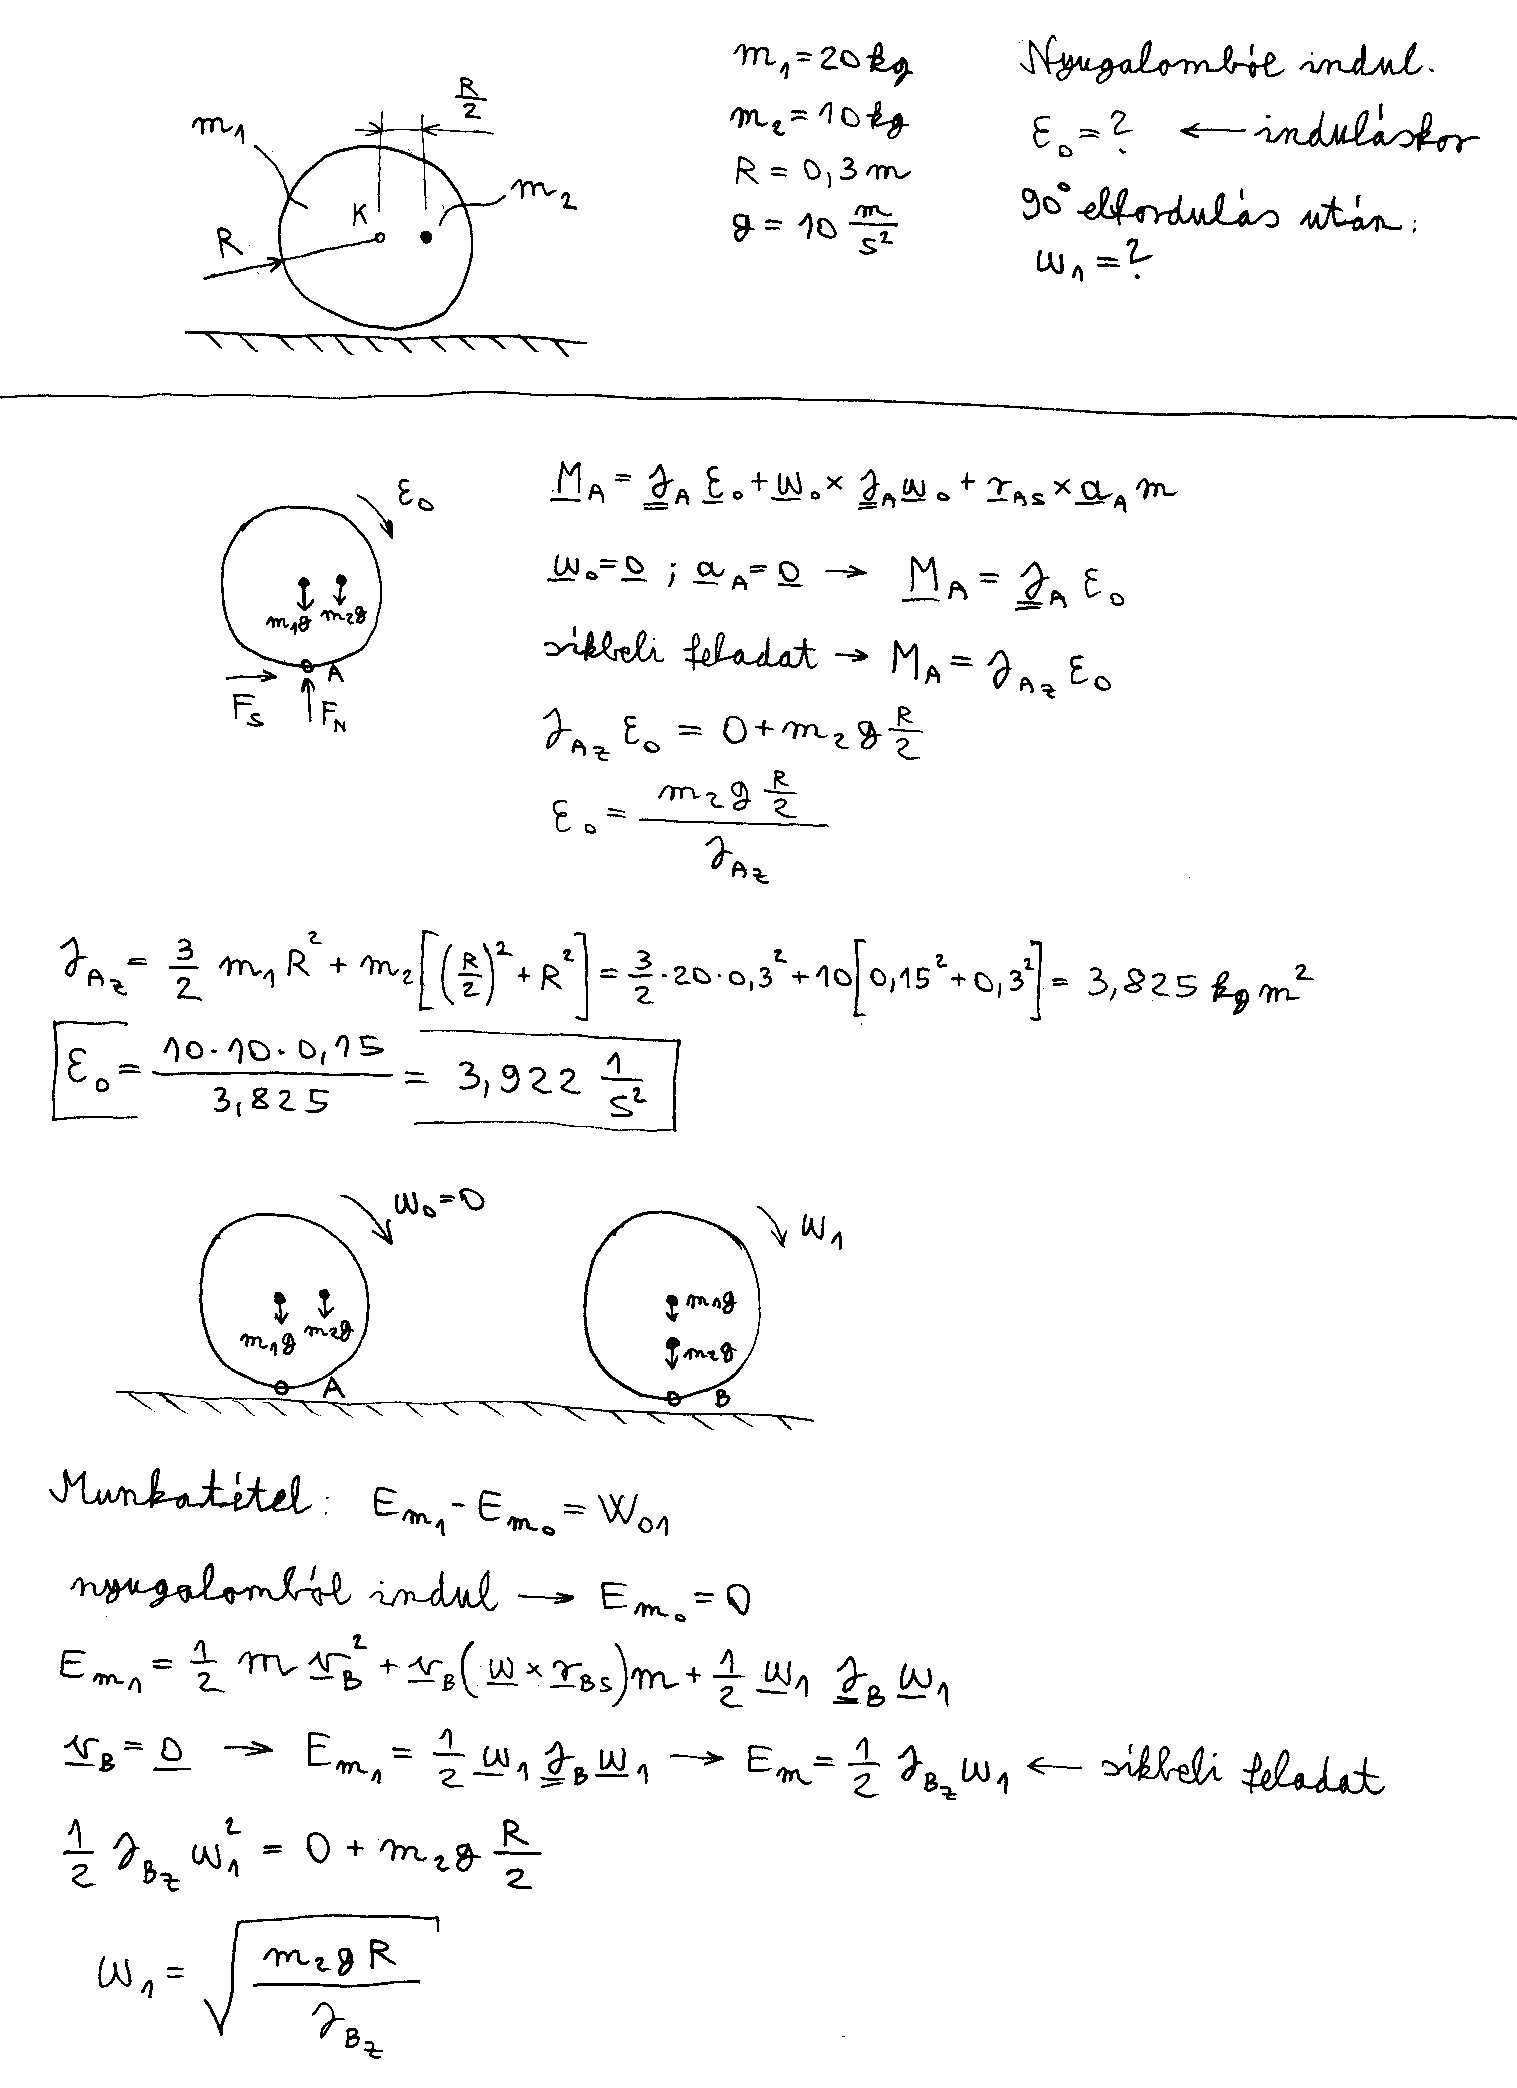 m₁ = 20 kg
m₂ = 10 kg
R = 0,3 m
g = 10 m/s²
Nyugalomból indul.
ε₀ = ? ← induláskor
90° elfordulás után:
ω₁ = ?
R/2
m₁
K
m₂
R
ε₀
m₁g m₂g
A
F_S F_N
M_A = J_A ε₀ + ω₀ × J_A ω₀ + r_AS × a_A m
ω₀ = 0 ; a_A = 0 → M_A = J_A ε₀
síkbeli feladat → M_A = J_Az ε₀
J_Az ε₀ = 0 + m₂g R/2
ε₀ = (m₂g R/2) / J_Az
J_Az = 3/2 m₁R² + m₂[(R/2)² + R²] = 3/2 · 20 · 0,3² + 10[0,15² + 0,3²] = 3,825 kg m²
ε₀ = (10 · 10 · 0,15) / 3,825 = 3,922 1/s²
ω₀ = 0
m₁g m₂g
A
ω₁
m₁g
m₂g
B
Munkatétel: E_m₁ - E_m₀ = W₀₁
nyugalomból indul → E_m₀ = 0
E_m₁ = 1/2 m v_B² + v_B(ω × r_BS)m + 1/2 ω₁ J_B ω₁
v_B = 0 → E_m₁ = 1/2 ω₁ J_B ω₁ → E_m = 1/2 J_Bz ω₁ ← síkbeli feladat
1/2 J_Bz ω₁² = 0 + m₂g R/2
ω₁ = √(m₂gR / J_Bz)